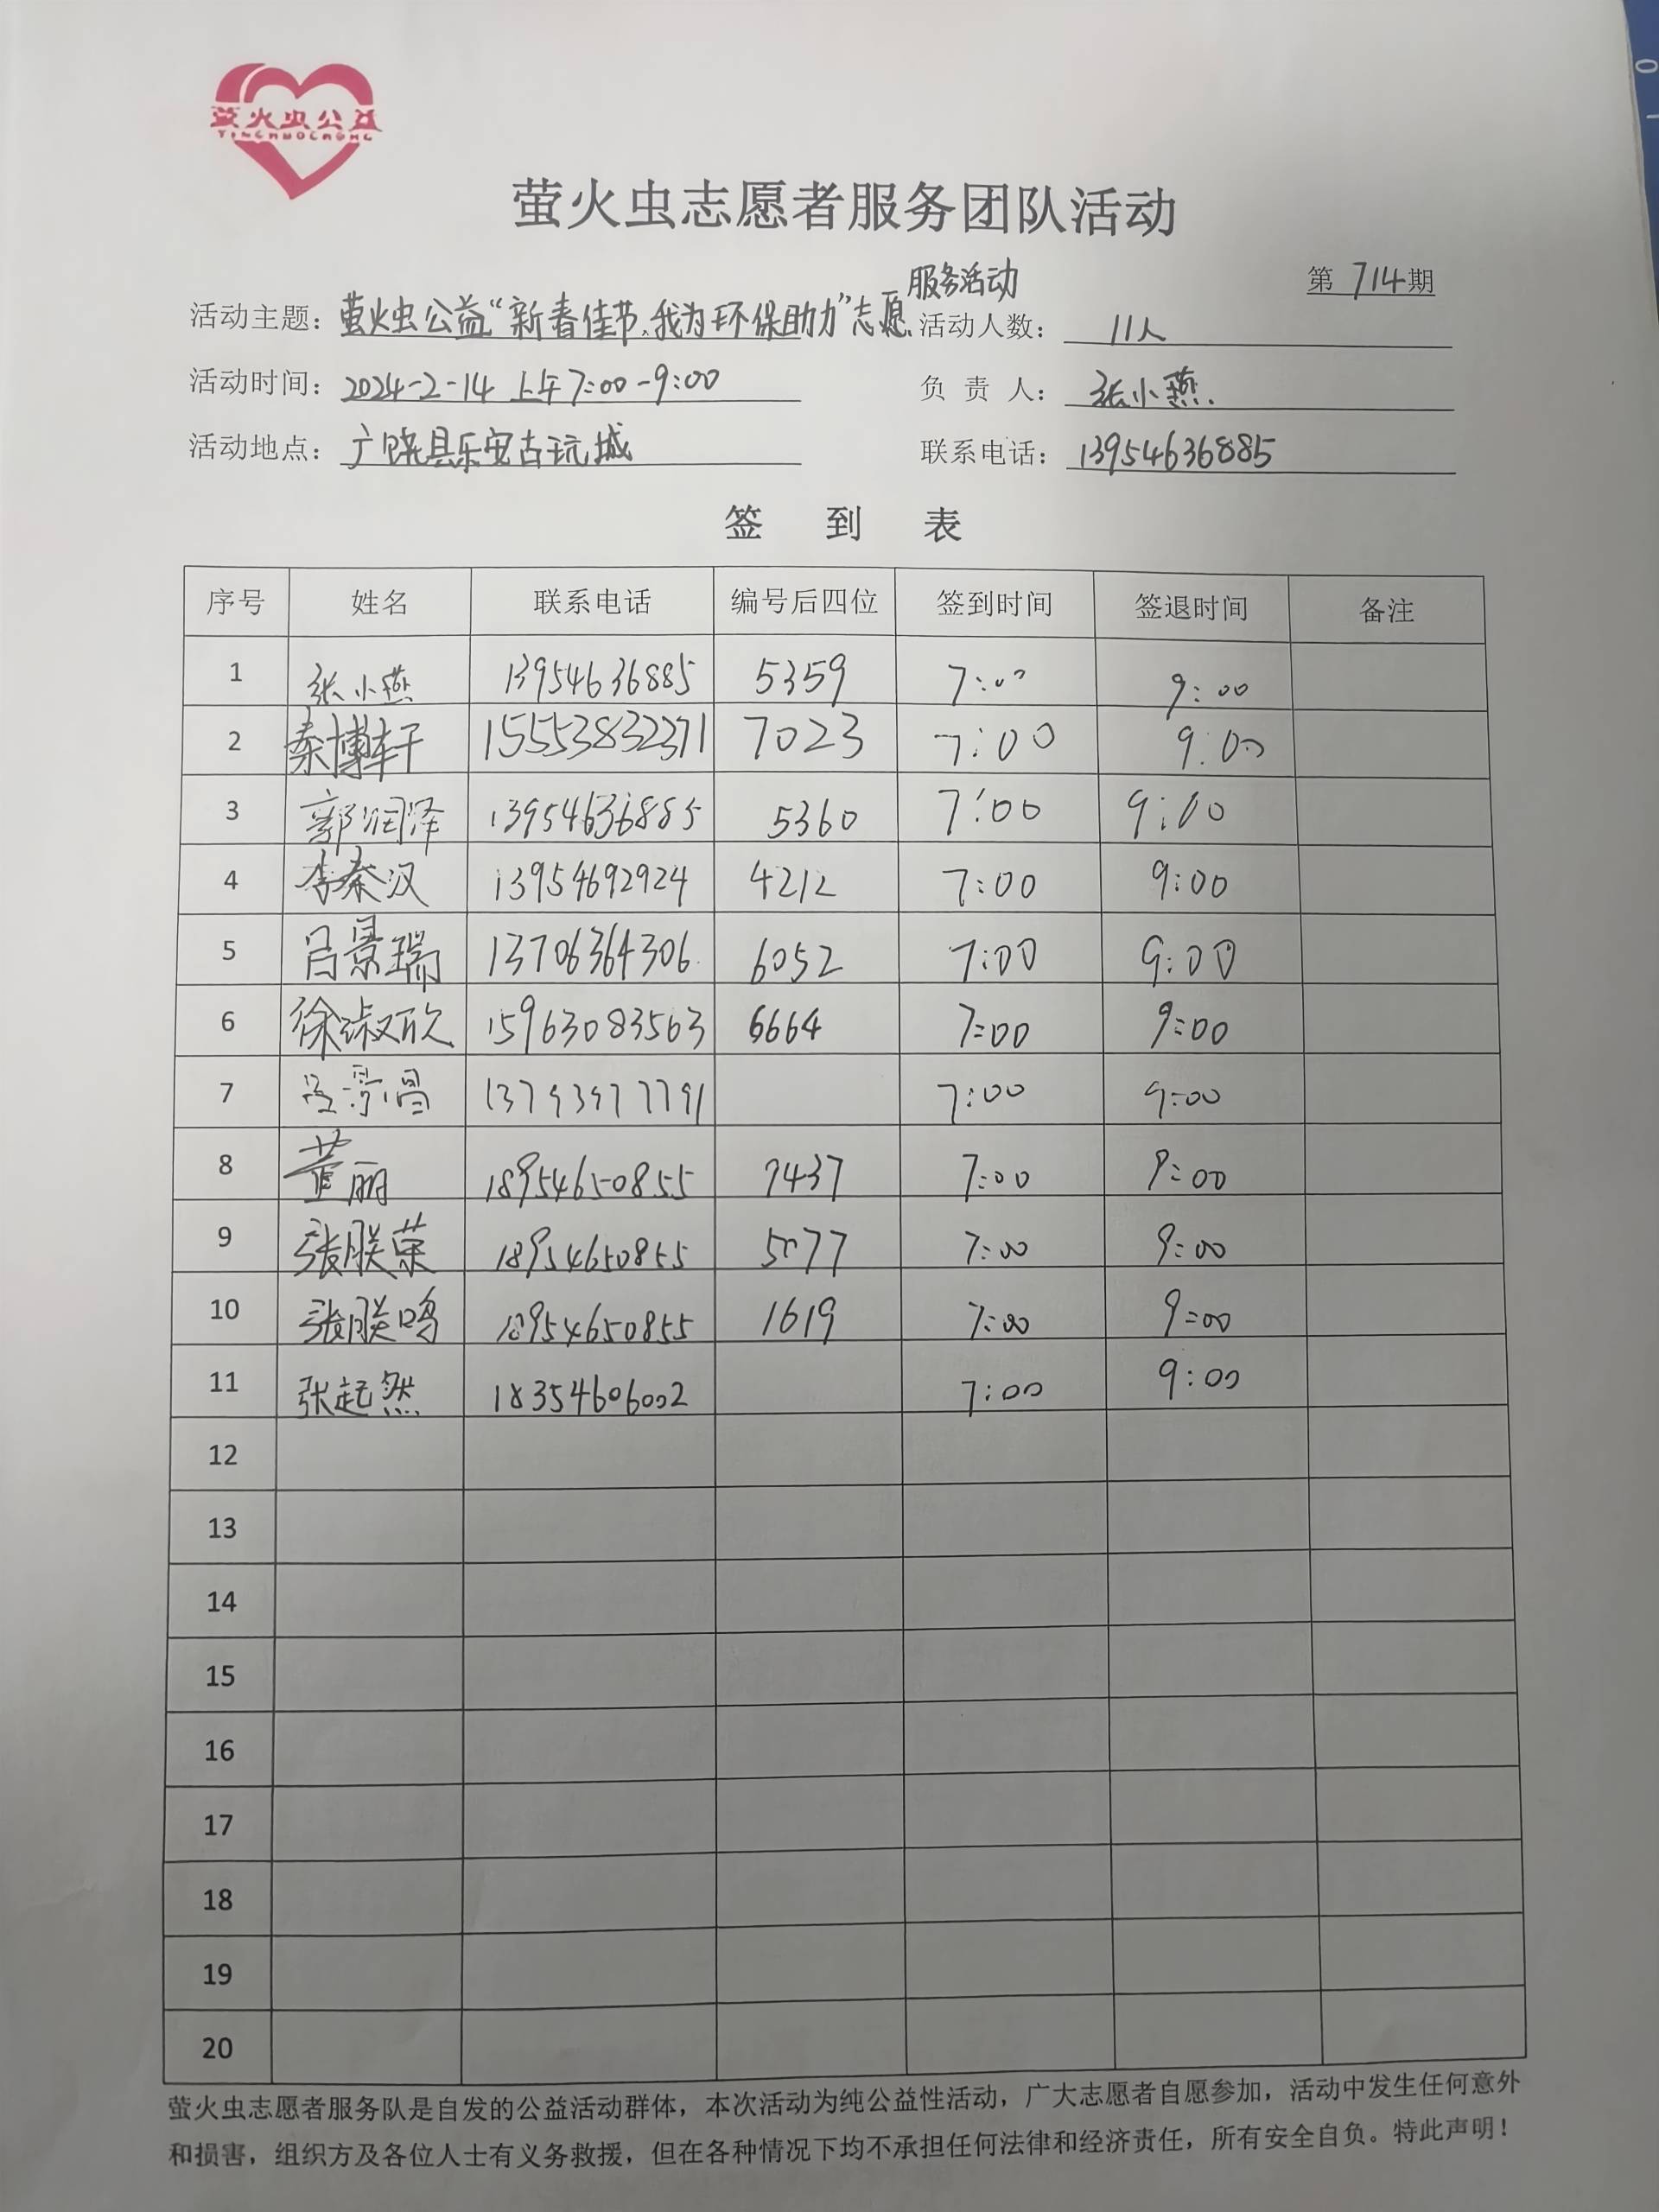 萤火虫公益
YINGHUOCHONG
萤火虫志愿者服务团队活动
第 714期
服务活动
活动主题：萤火虫公益“新春佳节,我为环保助力”志愿 活动人数： 11人
活动时间：2024-2-14 上午7:00-9:00 负 责 人： 张小燕.
活动地点：广饶县乐安古玩城 联系电话：13954636885
签 到 表
序号 姓名 联系电话 编号后四位 签到时间 签退时间 备注
1 张小燕 13954636885 5359 7:00 9:00
2 秦博轩 15553832371 7023 7:00 9:00
3 郭润泽 13954636885 5360 7:00 9:00
4 李秦汉 13954692924 4212 7:00 9:00
5 吕景瑞 13706364306 6052 7:00 9:00
6 徐淑欣 15963083563 6664 7:00 9:00
7 13793977791 7:00 9:00
8 董丽 18954650855 7437 7:00 9:00
9 张朕荣 18954650855 5077 7:00 9:00
10 张朕鸣 18954650855 1619 7:00 9:00
11 张起然 18354606002 7:00 9:00
12
13
14
15
16
17
18
19
20
萤火虫志愿者服务队是自发的公益活动群体，本次活动为纯公益性活动，广大志愿者自愿参加，活动中发生任何意外
和损害，组织方及各位人士有义务救援，但在各种情况下均不承担任何法律和经济责任，所有安全自负。特此声明！